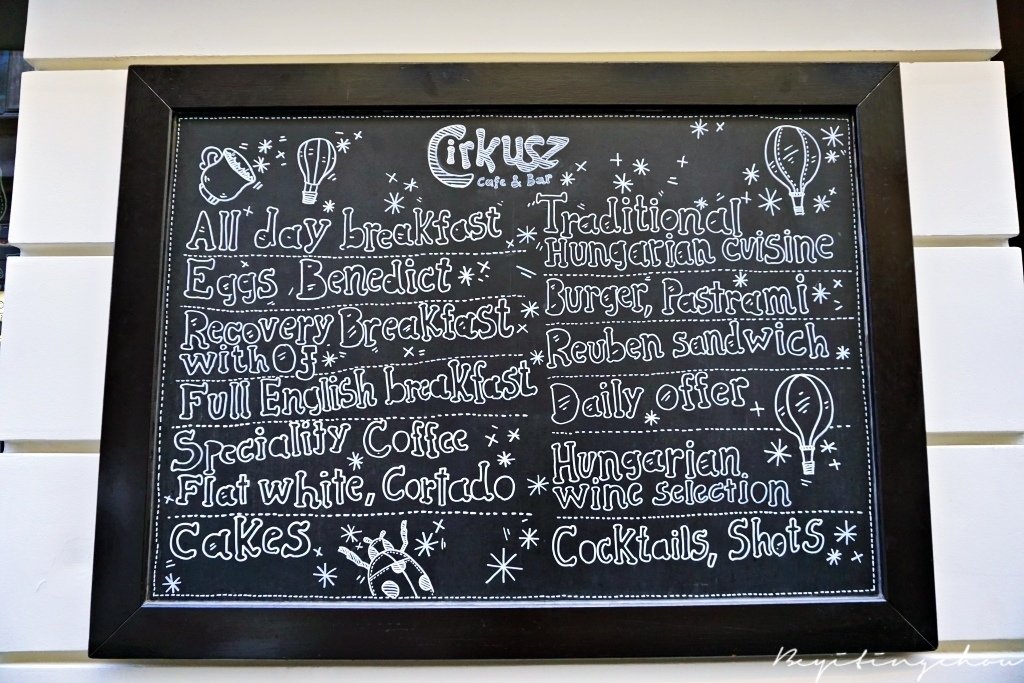 Cirkusz
Cafe & Bar
All day breakfast
Eggs Benedict
Recovery Breakfast
with OJ
Full English breakfast
Speciality Coffee
Flat white, Cortado
Cakes
Traditional
Hungarian cuisine
Burger, Pastrami
Reuben sandwich
Daily offer
Hungarian
wine selection
Cocktails, Shots
Beyitingchou